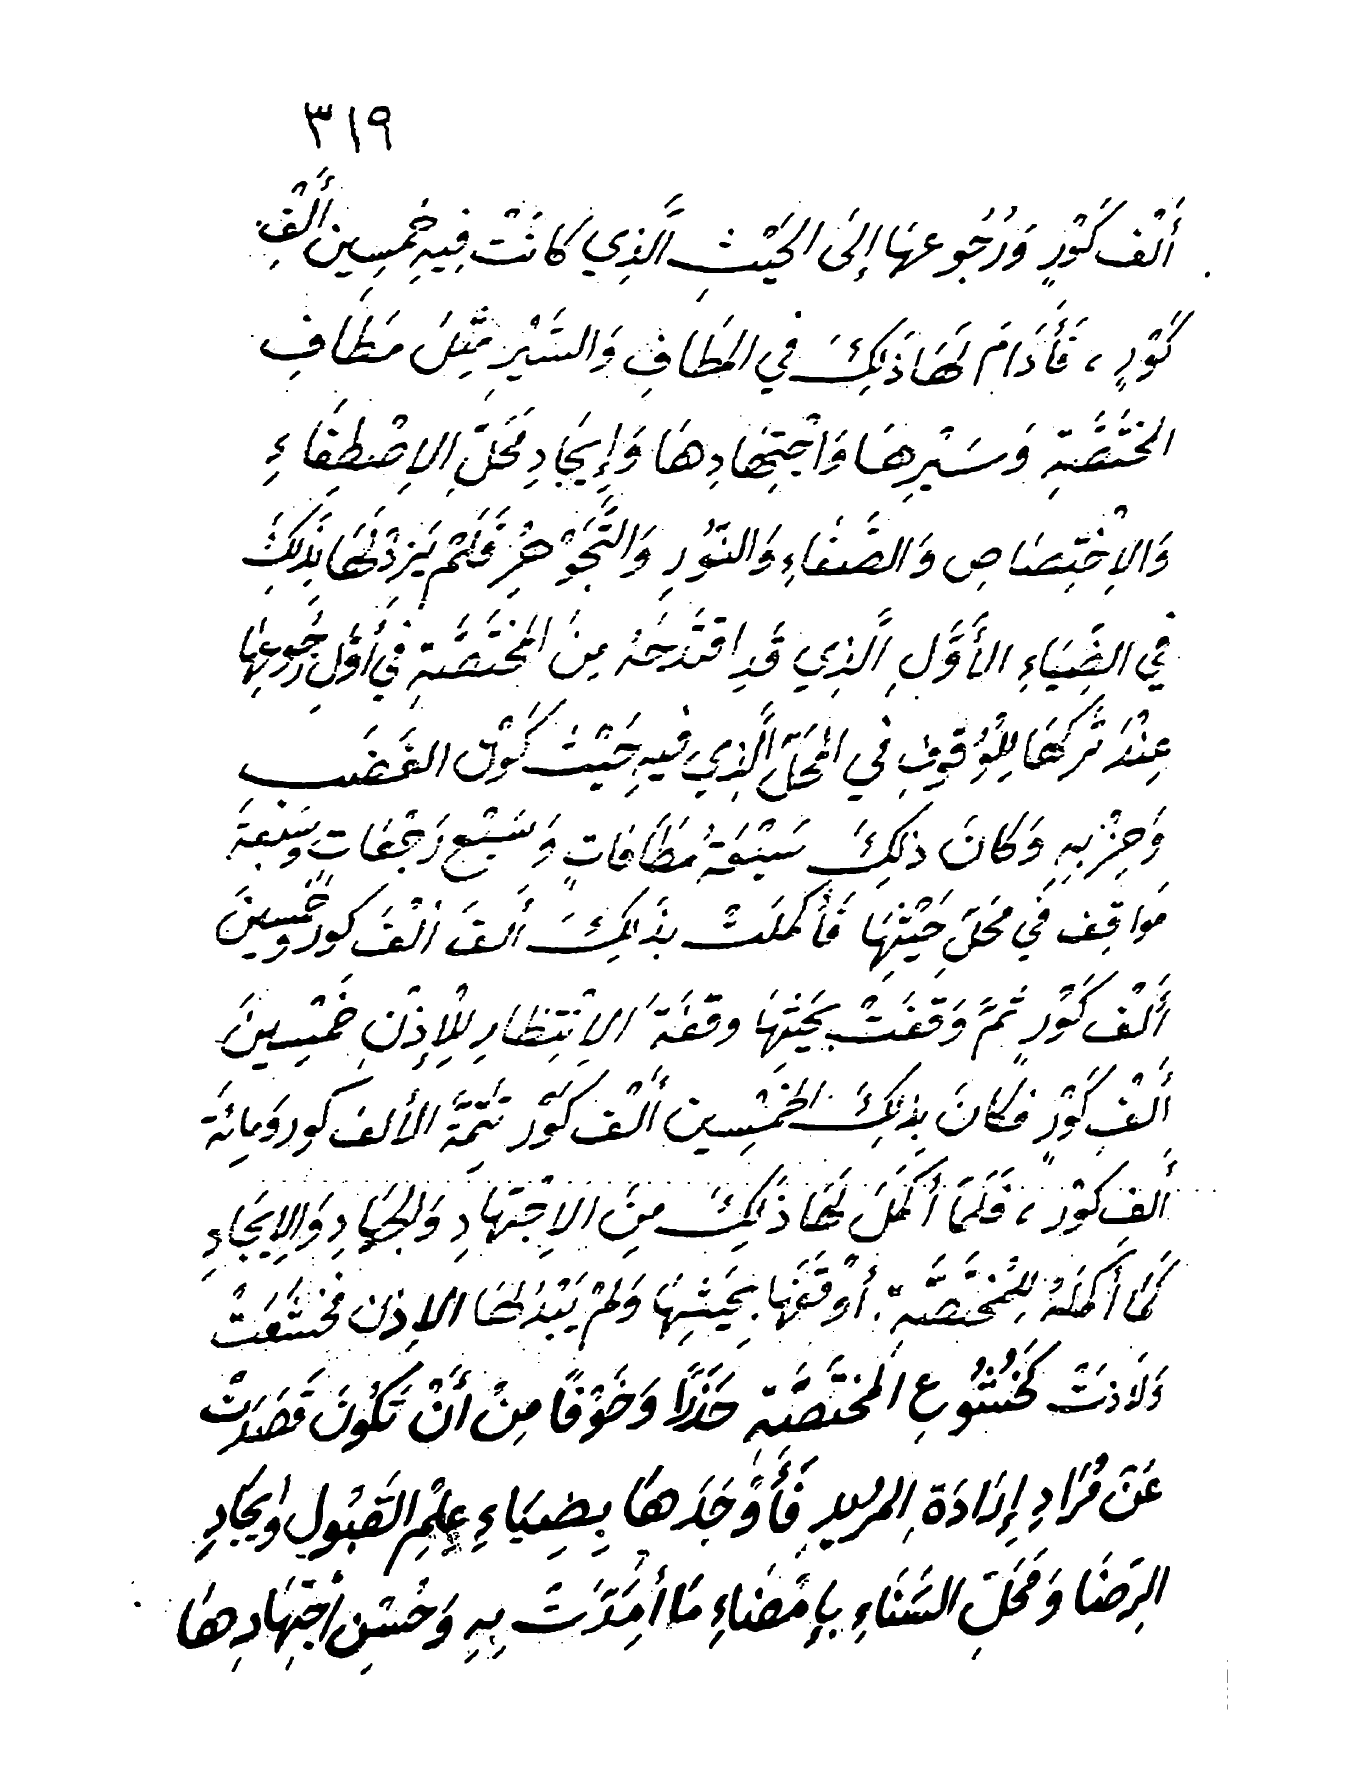 ٣١٩
أَلْف كَوْرٍ وَرُجُوعهَا إِلَى الحَيْثِ الَّذِي كَانَتْ فِيهِ خَمْسِين أَلْفِ
كَوْرٍ ، فَأَدَامَ لَهَا ذَلِكَ فِي المَطَافِ وَالسَّيْرِ مِثْلَ مَطَافِ
المُخْتَصَّةِ وَسَيْرِهَا وَاجْتِهَادِهَا وَإِيجَادِ مَحَلِّ الِاصْطِفَاءِ
وَالِاخْتِصَاصِ وَالصَّفَاءِ وَالنُّورِ وَالتَّجَوْهُرِ فَلَمْ يَزِدْ لَهَا بِذَلِكَ
فِي الضِّيَاءِ الأَوَّلِ الَّذِي قَدِ اقْتَدَحَهُ مِنَ المُخْتَصَّةِ فِي أَوَّلِ رُجُوعِهَا
عِنْدَ تَرْكِهَا لِلْوُقُوفِ فِي المَحَلِّ الَّذِي فِيهِ حَيْثُ كَوْن الغَضَب
وَحِزْبِهِ وَكَانَ ذلِكَ سَبْعَةُ مَطَافَاتٍ وَسَبْع رَجْعَات وسَبْعَةَ
مَوَاقِف فِي مَحَلِّ حَيْثِهَا فَأَكْمَلَتْ بِذَلِكَ أَلفَ أَلْفَ كَور وخَمْسِينَ
أَلْف كَوْرٍ ثُمَّ وَقَفَتْ بِحَيْثِهَا وقفَةَ الِانْتِظَارِ لِلْإِذْنِ خَمْسِينَ
أَلْفَ كَوْرٍ فكَانَ بِذلِكَ الخَمْسِين أَلْف كَوْر تَتِمَّة الأَلف كَور وَمائَة
أَلفِ كَوْر ، فَلَمَّا أَكْمَلَ لَهَا ذَلِكَ مِنَ الِاجْتِهَادِ وَالجِهَادِ وَالإِيجَادِ
كَمَا أَكْمَلَهُ لِلْمُخْتَصَّةِ أَوْقَفَهَا بِحَيْثِهَا وَلَمْ يَبْدُ لَهَا الإِذن فَخَشَعَتْ
وَلَاذَتْ كَخُشُوعِ المُخْتَصَّةِ حَذَرًا وَخَوْفًا مِنْ أَنْ تَكُونَ قَصَدَتْ
عَنْ مُرَادِ إِرَادَةِ المُرِيدِ فَأَوْجَدَهَا بِضِيَاءِ عِلْمِ القَبُولِ وإيجَادِ
الرِضَا وَمَحَلِّ السَّنَاءِ بِإِمْضَاءِ مَا أُمِدَّتْ بِهِ وَحُسْنِ اجْتِهَادِهَا